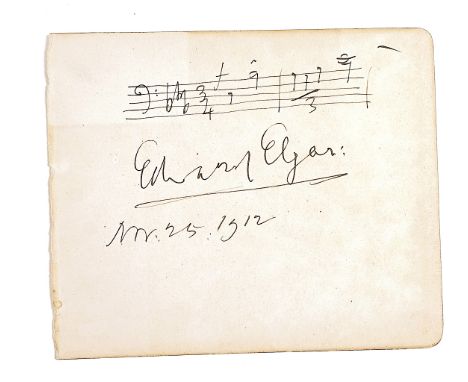 3
4
3
Edward Elgar:
Nov. 25. 1912